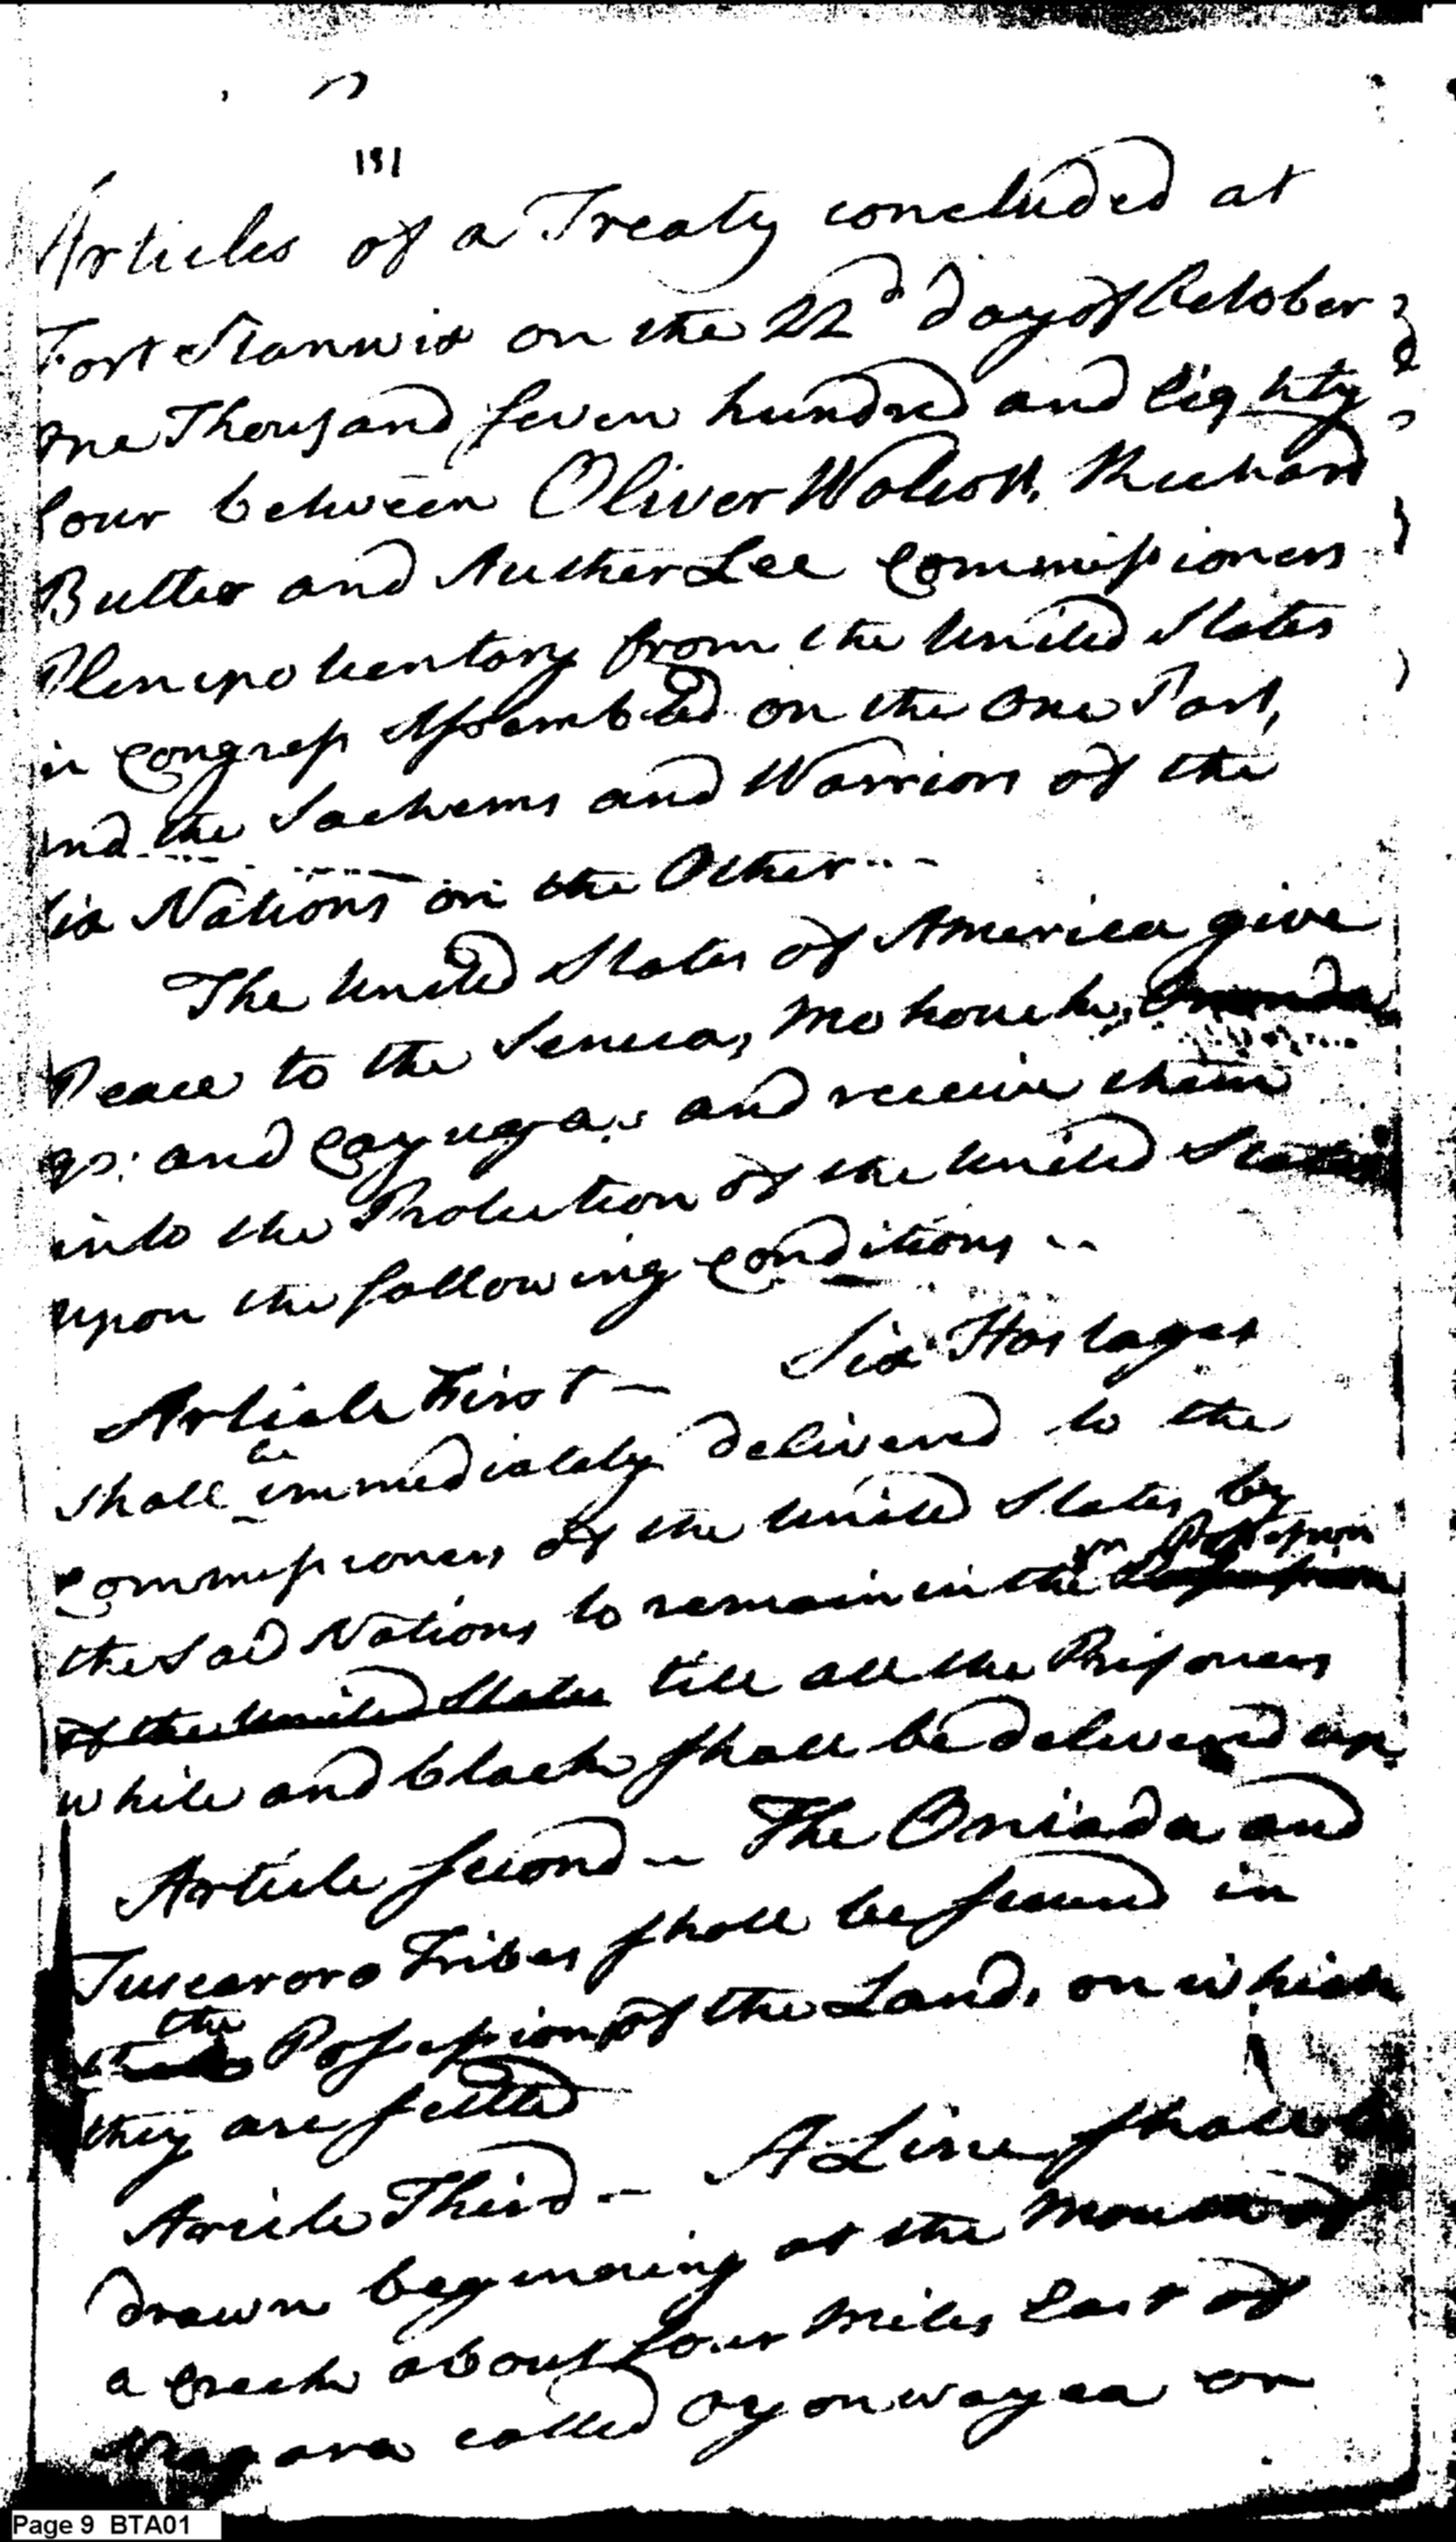 191
Articles of a Treaty concluded at
Fort Stanwix on the 22d day of October
One Thousand seven hundred and Eighty
four between Oliver Wolcott, Richard
Butler and Auther Lee Commissioners
Plenipotentary from the United States
in Congress Assembled on the One Part,
and the Sachems and Warriors of the
Six Nations on the Other
The United States of America give
Peace to the Seneca, Mohouck,
gs: and Cayugas: and receive them
into the Protection of the United States
upon the following Conditions
Article First — Six Hostages
shall be immediately delivered to the
Commissioners of the United States by
the said Nations to remain in the Possession
of the United States till all the Prisoners
white and black shall be delivered up
Article second — The Oniada and
Tuscaroro Tribes shall be secured in
the Possession of the Land, on which
they are settled
Aricle Third — A Line shall be
drawn beginning at the Mouth of
a Creek about four Miles East of
Niagara called Oyonwayea or
Page 9 BTA01